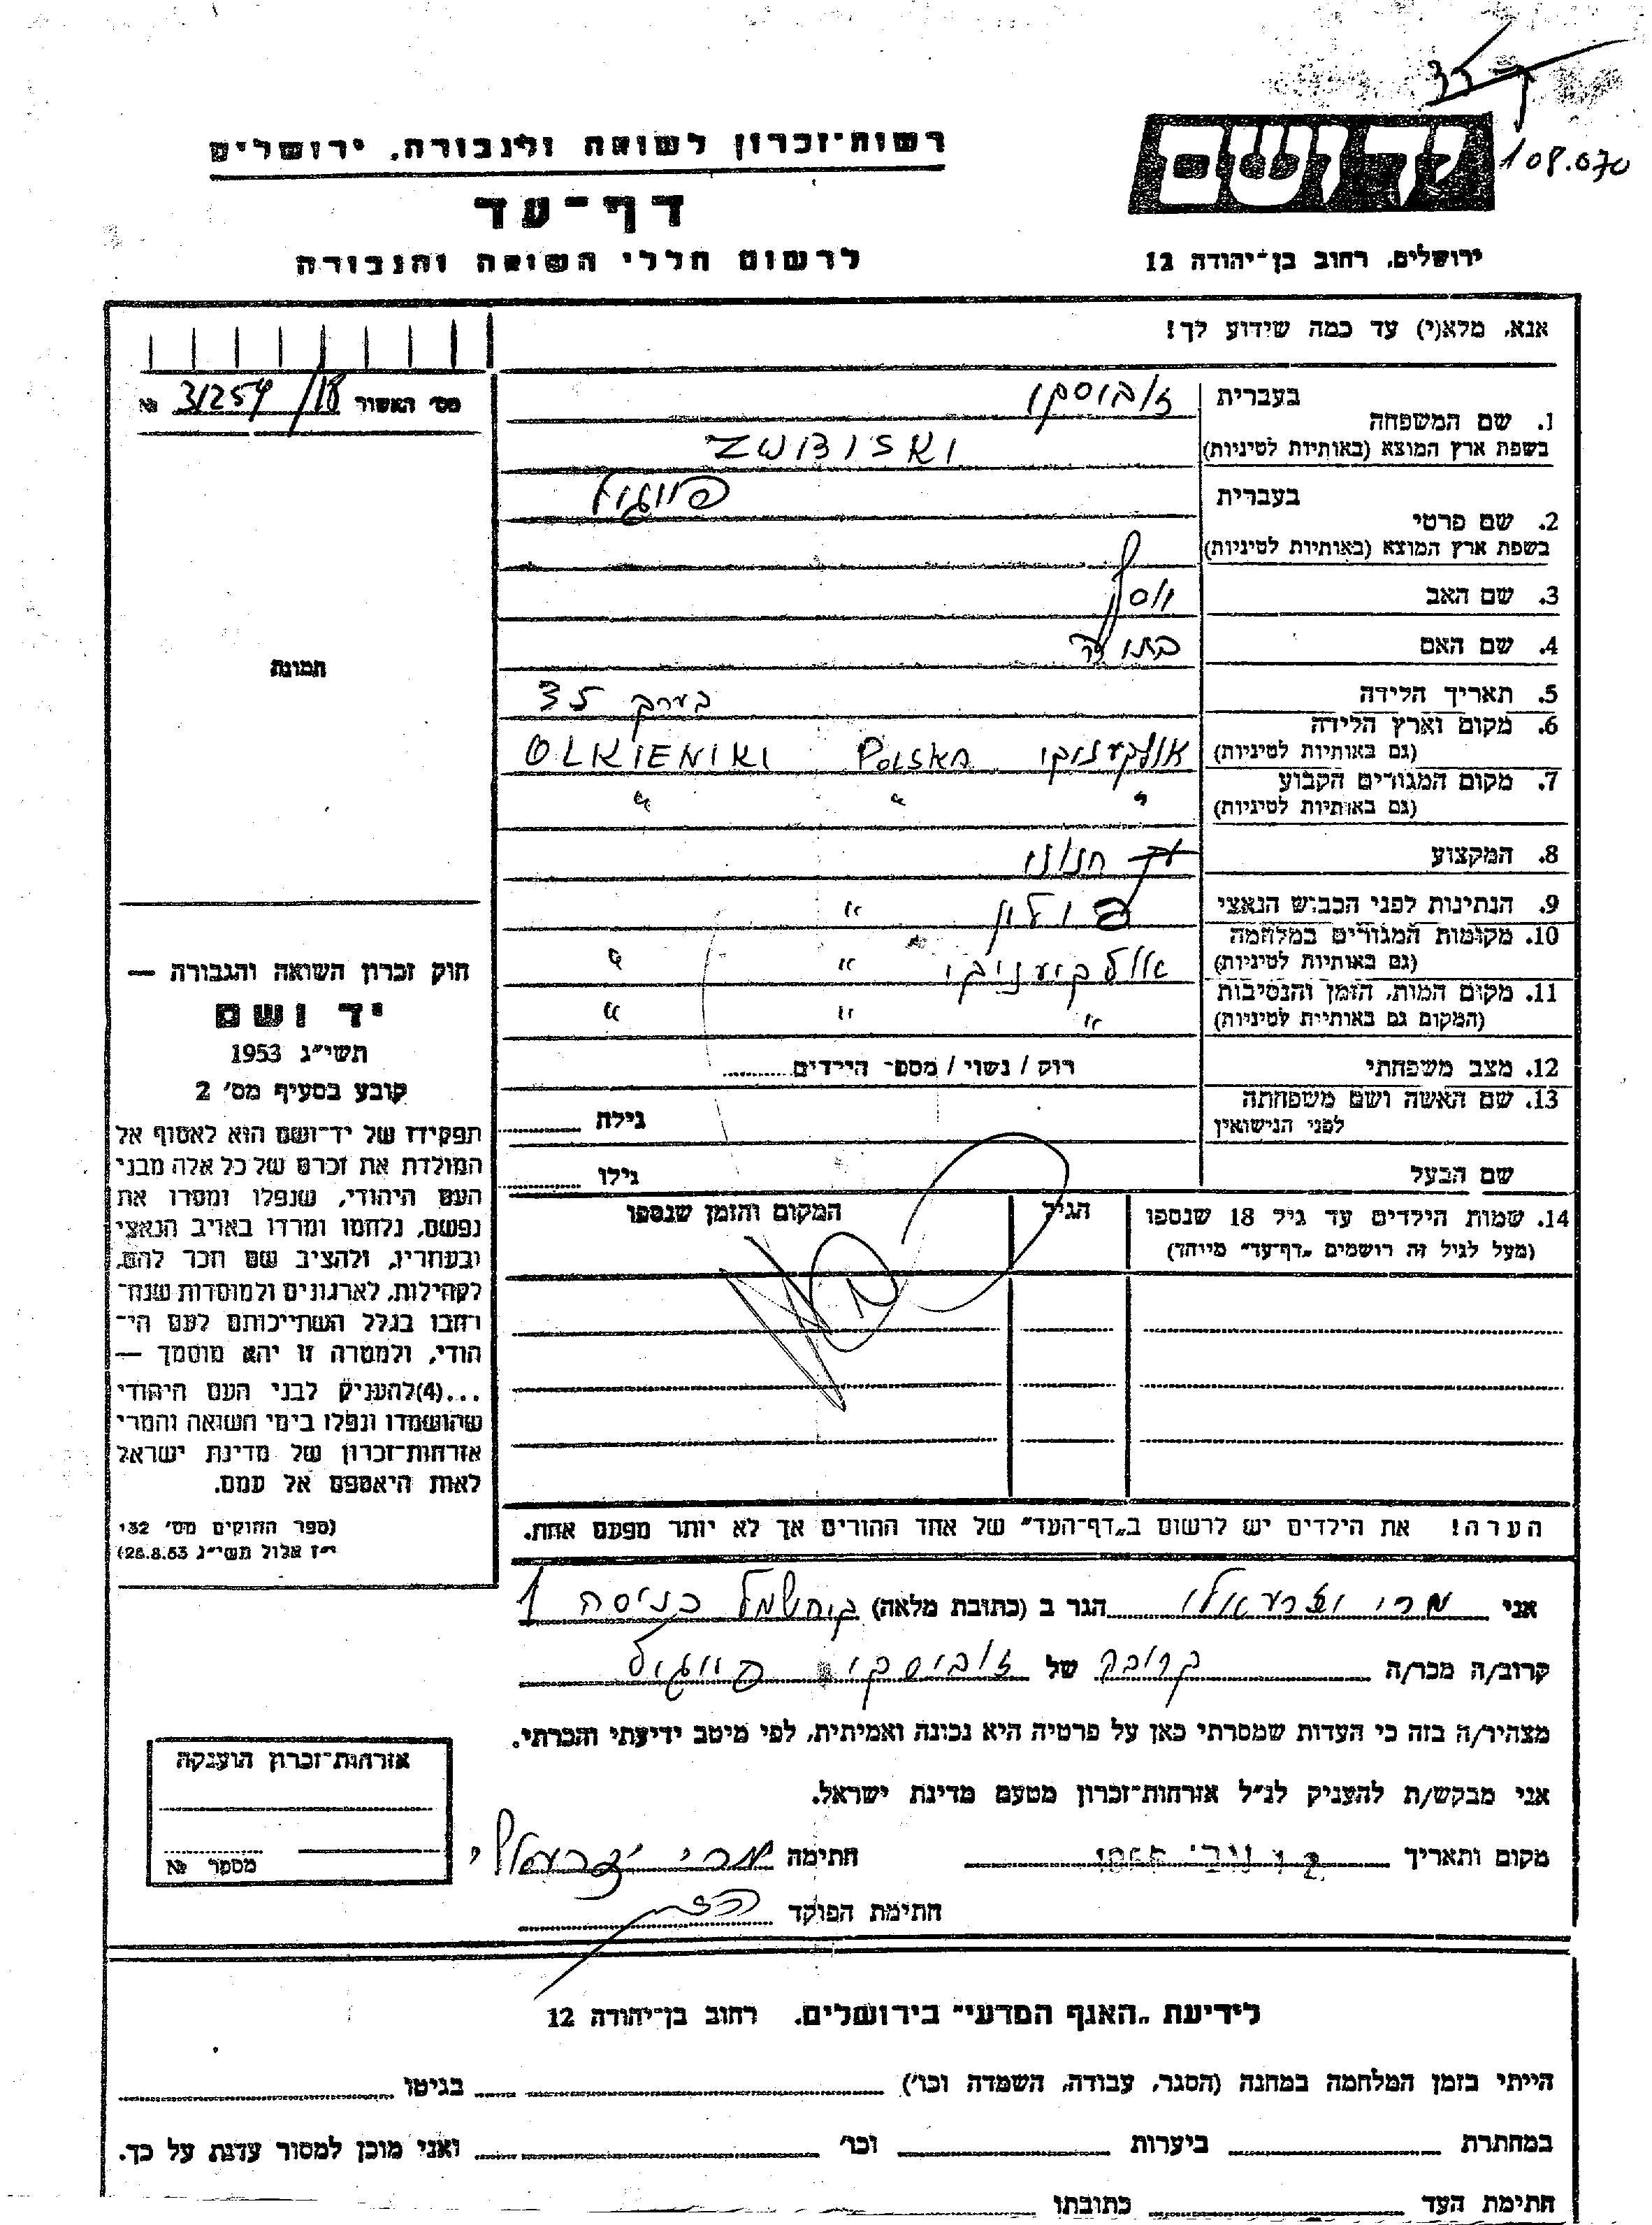 108.070
רשות־זכרון לשואה ולגבורה, ירושלים
דף־עד
לרשום חללי השואה והגבורה
יד ושם
ירושלים, רחוב בן־יהודה 12
אנא, מלא(י) עד כמה שידוע לך!
מס׳ האשור 31254/18 №
בעברית זובוסקי
1. שם המשפחה
בשפת ארץ המוצא (באותיות לטיניות) ZWBISKI
בעברית פייגיל
2. שם פרטי
בשפת ארץ המוצא (באותיות לטיניות)
3. שם האב יוסף
4. שם האם
5. תאריך הלידה בערך 35
6. מקום וארץ הלידה
(גם באותיות לטיניות) אולקעניקי Polska OLKIENIKI
7. מקום המגורים הקבוע
(גם באותיות לטיניות) " " "
8. המקצוע
9. הנתינות לפני הכבוש הנאצי פולין "
10. מקומות המגורים במלחמה
(גם באותיות לטיניות) אולקיעניקי " "
11. מקום המות, הזמן והנסיבות
(המקום גם באותיות לטיניות) " " "
12. מצב משפחתי רוק / נשוי / מספר הילדים
13. שם האשה ושם משפחתה
לפני הנישואין גילה
שם הבעל גילו
14. שמות הילדים עד גיל 18 שנספו הגיל המקום והזמן שנספו
(מעל לגיל זה רושמים „דף־עד" מיוחד)
הערה! את הילדים יש לרשום ב„דף־העד" של אחד ההורים אך לא יותר מפעם אחת.
תמונה
חוק זכרון השואה והגבורה —
יד ושם
תשי״ג 1953
קובע בסעיף מס׳ 2
תפקידו של יד־ושם הוא לאסוף אל
המולדת את זכרם של כל אלה מבני
העם היהודי, שנפלו ומסרו את
נפשם, נלחמו ומרדו באויב הנאצי
ובעוזריו, ולהציב שם וזכר להם,
לקהילות, לארגונים ולמוסדות שנח־
רבו בגלל השתייכותם לעם הי־
הודי, ולמטרה זו יהא מוסמך —
...(4)להעניק לבני העם היהודי
שהושמדו ונפלו בימי השואה והמרי
אזרחות־זכרון של מדינת ישראל
לאות היאספם אל עמם.
(ספר החוקים מס׳ 132
י״ז אלול תשי״ג 28.8.53)
אני מרי יזרעאלי הגר ב (כתובת מלאה) כניסה 1
קרוב/ה מכר/ה קרובה של זוביסקי פייגיל
מצהיר/ה בזה כי העדות שמסרתי כאן על פרטיה היא נכונה ואמיתית, לפי מיטב ידיעתי והכרתי.
אני מבקש/ת להעניק לנ״ל אזרחות־זכרון מטעם מדינת ישראל.
מקום ותאריך חתימה מרי יזרעאלי
חתימת הפוקד
אזרחות־זכרון הוענקה
מספר №
לידיעת „האגף המדעי" בירושלים. רחוב בן־יהודה 12
הייתי בזמן המלחמה במחנה (הסגר, עבודה, השמדה וכו׳) בגיטו
במחתרת ביערות וכו׳ ואני מוכן למסור עדות על כך.
חתימת העד כתובתו